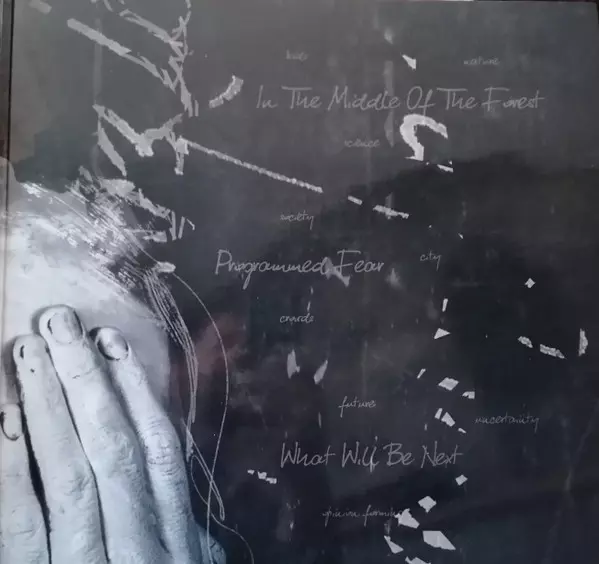 nature
In The Middle Of The Forest
science
society
Programmed Fear
city
crowds
future
uncertainty
What Will Be Next